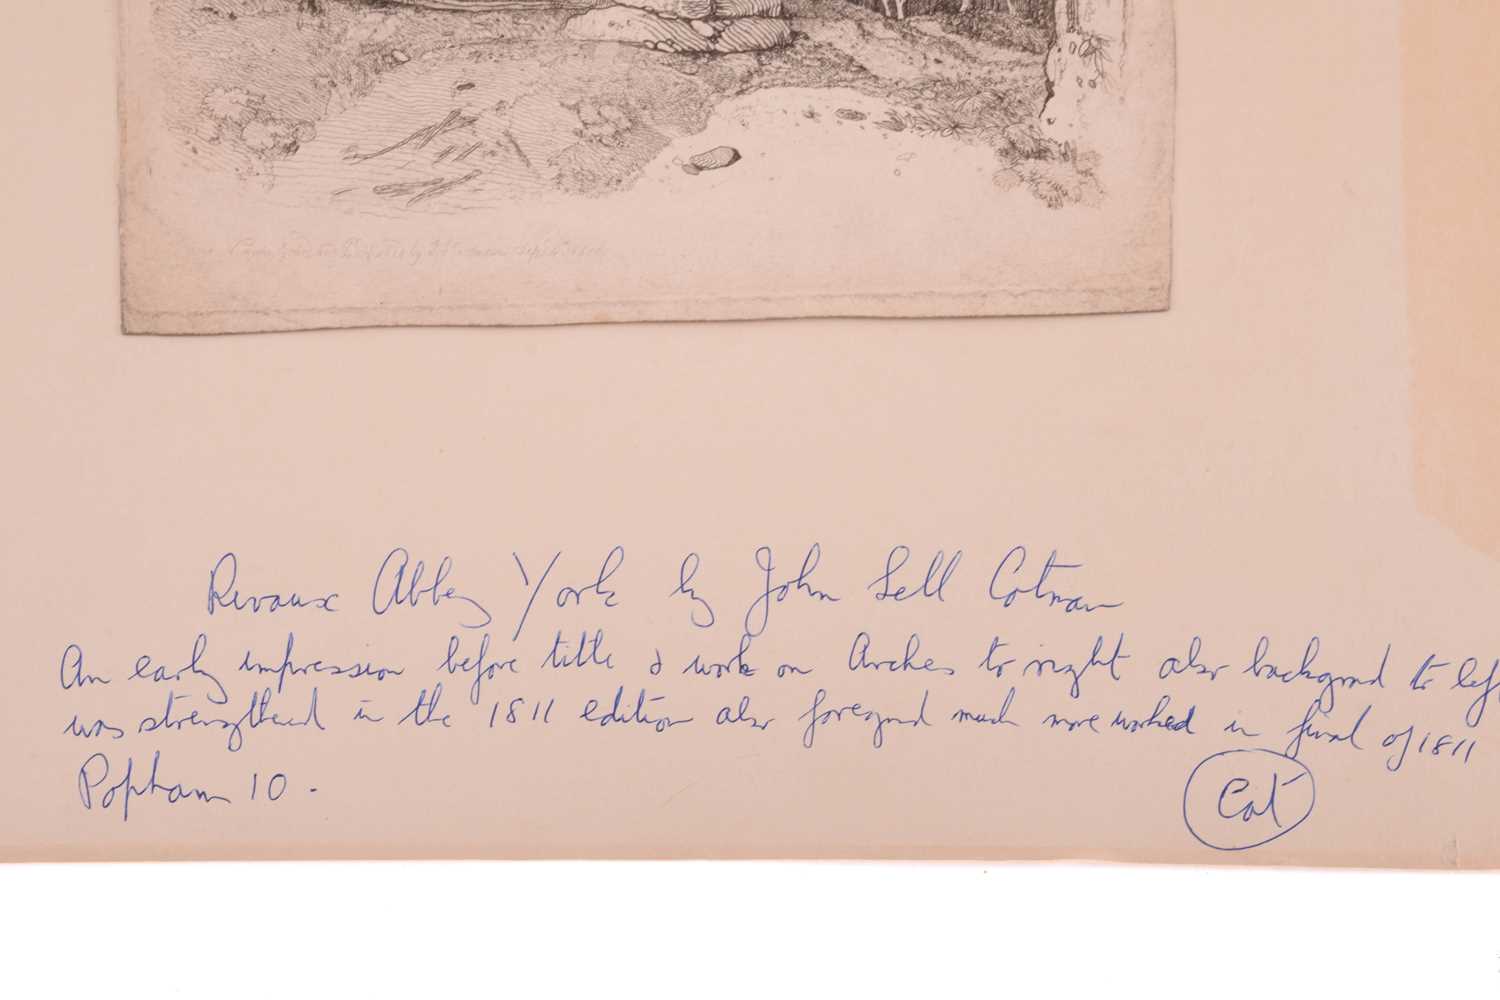 Published by
Rivaux Abbey York by John Sell Cotman
An early impression before title & work on Arches to right also backgrond to lef
was strengthend in the 1811 edition also foregrnd much more worked in final of 1811
Popham 10.
Cot